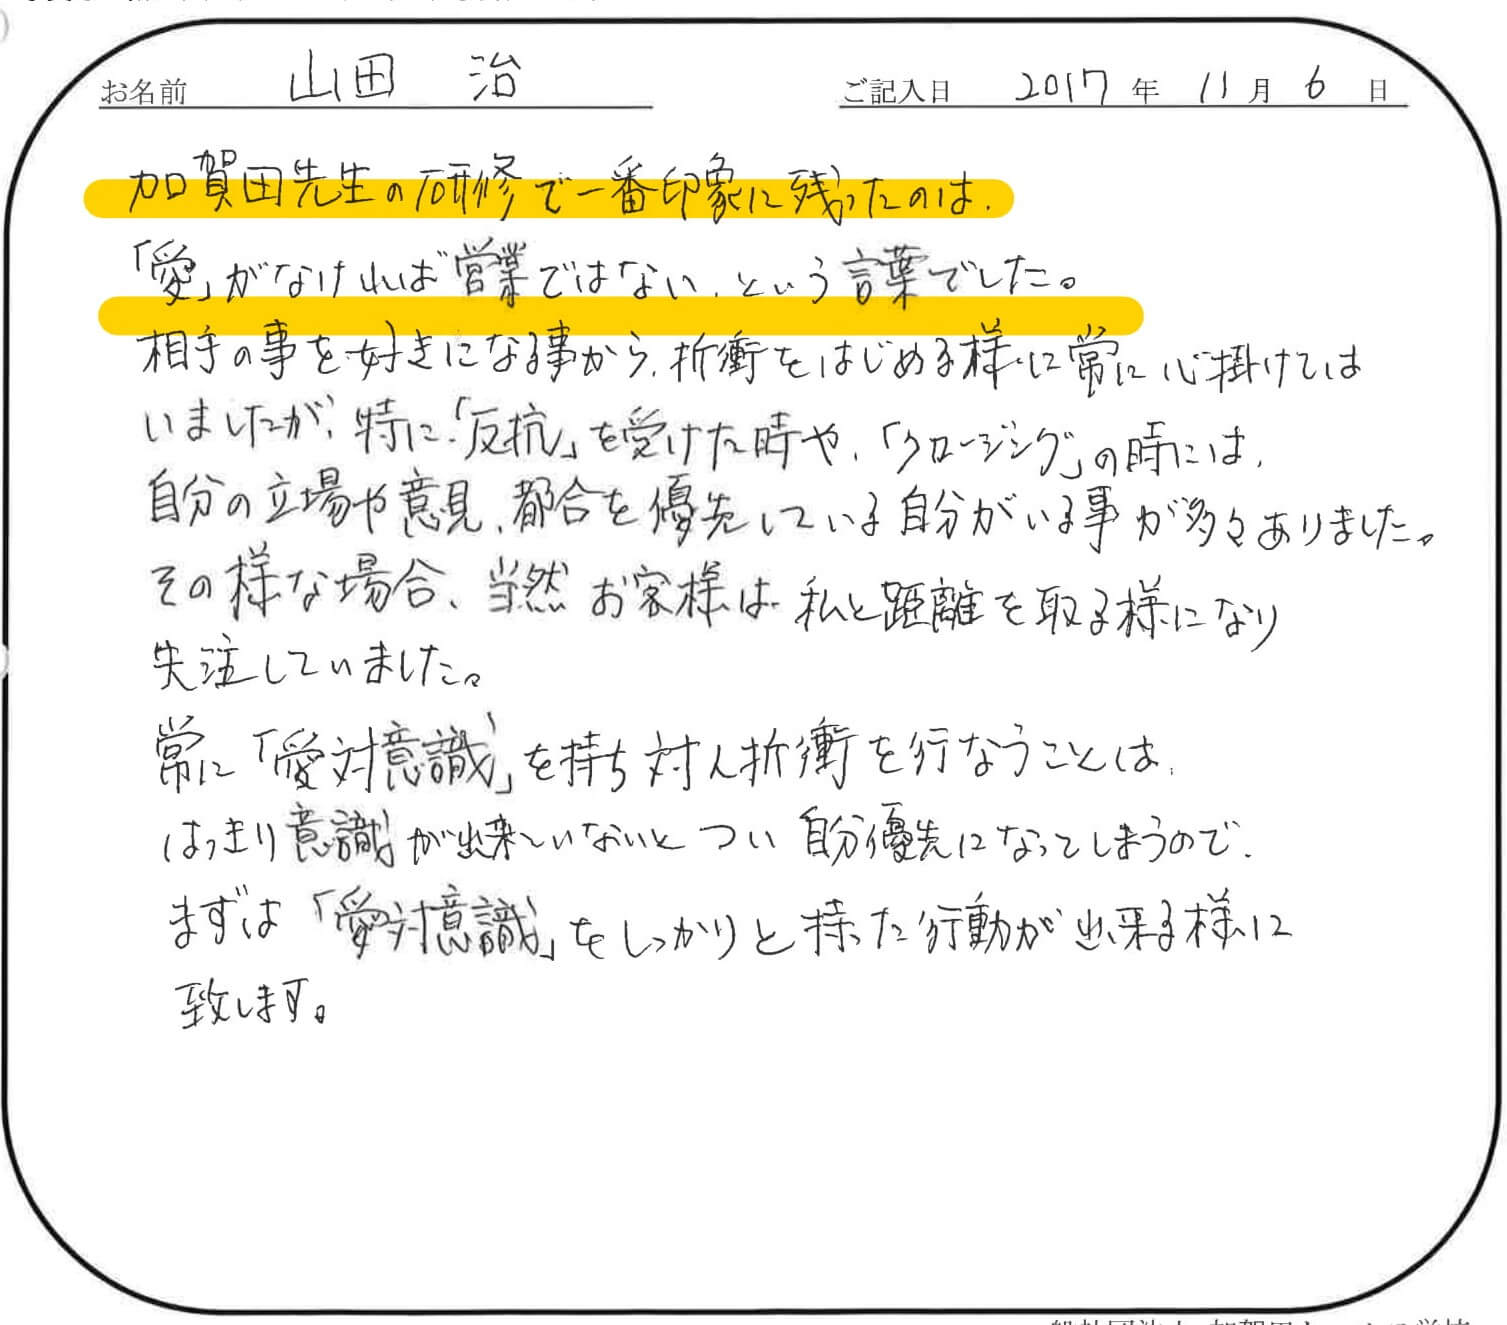 お名前 山田 治 ご記入日 2017 年 11 月 6 日
加賀田先生の研修で一番印象に残ったのは、
「愛」がなければ営業ではない、という言葉でした。
相手の事を好きになる事から、折衝をはじめる様に常に心掛けては
いましたが、特に「反抗」を受けた時や、「クロージング」の時には、
自分の立場や意見、都合を優先している自分がいる事が多々ありました。
その様な場合、当然お客様は私と距離を取る様になり
失注していました。
常に「愛対意識」を持ち対人折衝を行なうことは、
はっきり意識が出来ていないとつい自分優先になってしまうので、
まずは「愛対意識」をしっかりと持った行動が出来る様に
致します。